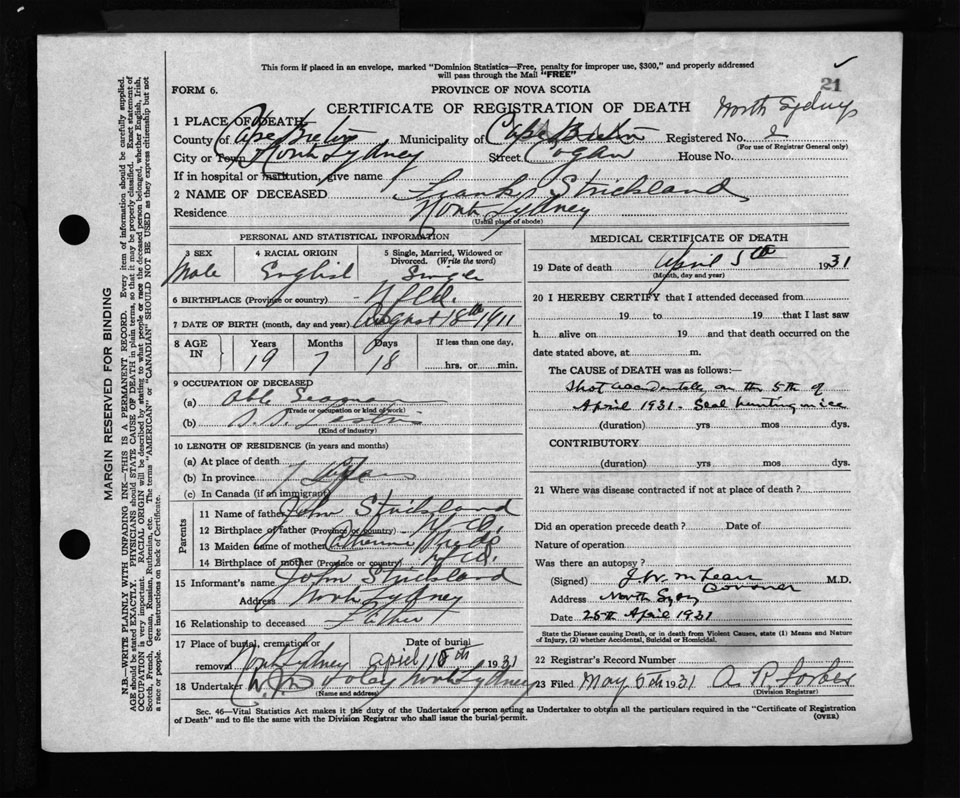 This form if placed in an envelope, marked "Dominion Statistics—Free, penalty for improper use, $300," and properly addressed
will pass through the Mail "FREE"
21
FORM 6.
PROVINCE OF NOVA SCOTIA
CERTIFICATE OF REGISTRATION OF DEATH
North Sydney
1 PLACE OF DEATH
County of Cape Breton Municipality of Cape Breton Registered No.
(For use of Registrar General only)
City or Town North Sydney Street Cogan House No.
If in hospital or institution, give name
2 NAME OF DECEASED Frank Strickland
Residence North Sydney
(Usual place of abode)
PERSONAL AND STATISTICAL INFORMATION
3 SEX 4 RACIAL ORIGIN 5 Single, Married, Widowed or Divorced. (Write the word)
Male English Single
6 BIRTHPLACE (Province or country) Nfld.
7 DATE OF BIRTH (month, day and year) August 18th 1911
8 AGE IN Years Months Days If less than one day,
19 7 18 hrs. or min.
9 OCCUPATION OF DECEASED
(a) Able Seaman
(Trade or occupation or kind of work)
(b) S.S.
(Kind of industry)
10 LENGTH OF RESIDENCE (in years and months)
(a) At place of death
(b) In province
(c) In Canada (if an immigrant)
Parents
11 Name of father John Strickland
12 Birthplace of father (Province or country) Nfld.
13 Maiden name of mother Catherine
14 Birthplace of mother (Province or country) Nfld.
15 Informant's name John Strickland
Address North Sydney
16 Relationship to deceased Father
17 Place of burial, cremation or removal North Sydney Date of burial April 1931
18 Undertaker Foley North Sydney
(Name and address)
MEDICAL CERTIFICATE OF DEATH
19 Date of death April 5th 1931
(Month, day and year)
20 I HEREBY CERTIFY that I attended deceased from
19 to 19 that I last saw
h alive on 19 and that death occurred on the
date stated above, at m.
The CAUSE of DEATH was as follows:—
Shot accidentally on the 5th of
April 1931 - Seal hunting on ice
(duration) yrs mos dys.
CONTRIBUTORY
(duration) yrs mos dys.
21 Where was disease contracted if not at place of death?
Did an operation precede death? Date of
Nature of operation
Was there an autopsy?
(Signed) J. W. McLean M.D.
Coroner
Address North Sydney
Date 25th April 1931
State the Disease causing Death, or in death from Violent Causes, state (1) Means and Nature
of Injury, (2) whether Accidental, Suicidal or Homicidal.
22 Registrar's Record Number
23 Filed May 5th 1931 A. R. Forbes
(Division Registrar)
Sec. 46—Vital Statistics Act makes it the duty of the Undertaker or person acting as Undertaker to obtain all the particulars required in the "Certificate of Registration
of Death" and to file the same with the Division Registrar who shall issue the burial permit.
(OVER)
MARGIN RESERVED FOR BINDING
N.B.—WRITE PLAINLY WITH UNFADING INK—THIS IS A PERMANENT RECORD. Every item of information should be carefully supplied.
AGE should be stated EXACTLY. PHYSICIANS should STATE CAUSE OF DEATH in plain terms, so that it may be properly classified. Exact statement of
OCCUPATION is very important. RACIAL ORIGIN will be described by stating to what people or race the deceased person belonged, whether English, Irish,
Scotch, French, German, Russian, Ruthenian, etc. The terms "AMERICAN" or "CANADIAN" SHOULD NOT BE USED as they express citizenship but not
a race or people. See instructions on back of Certificate.